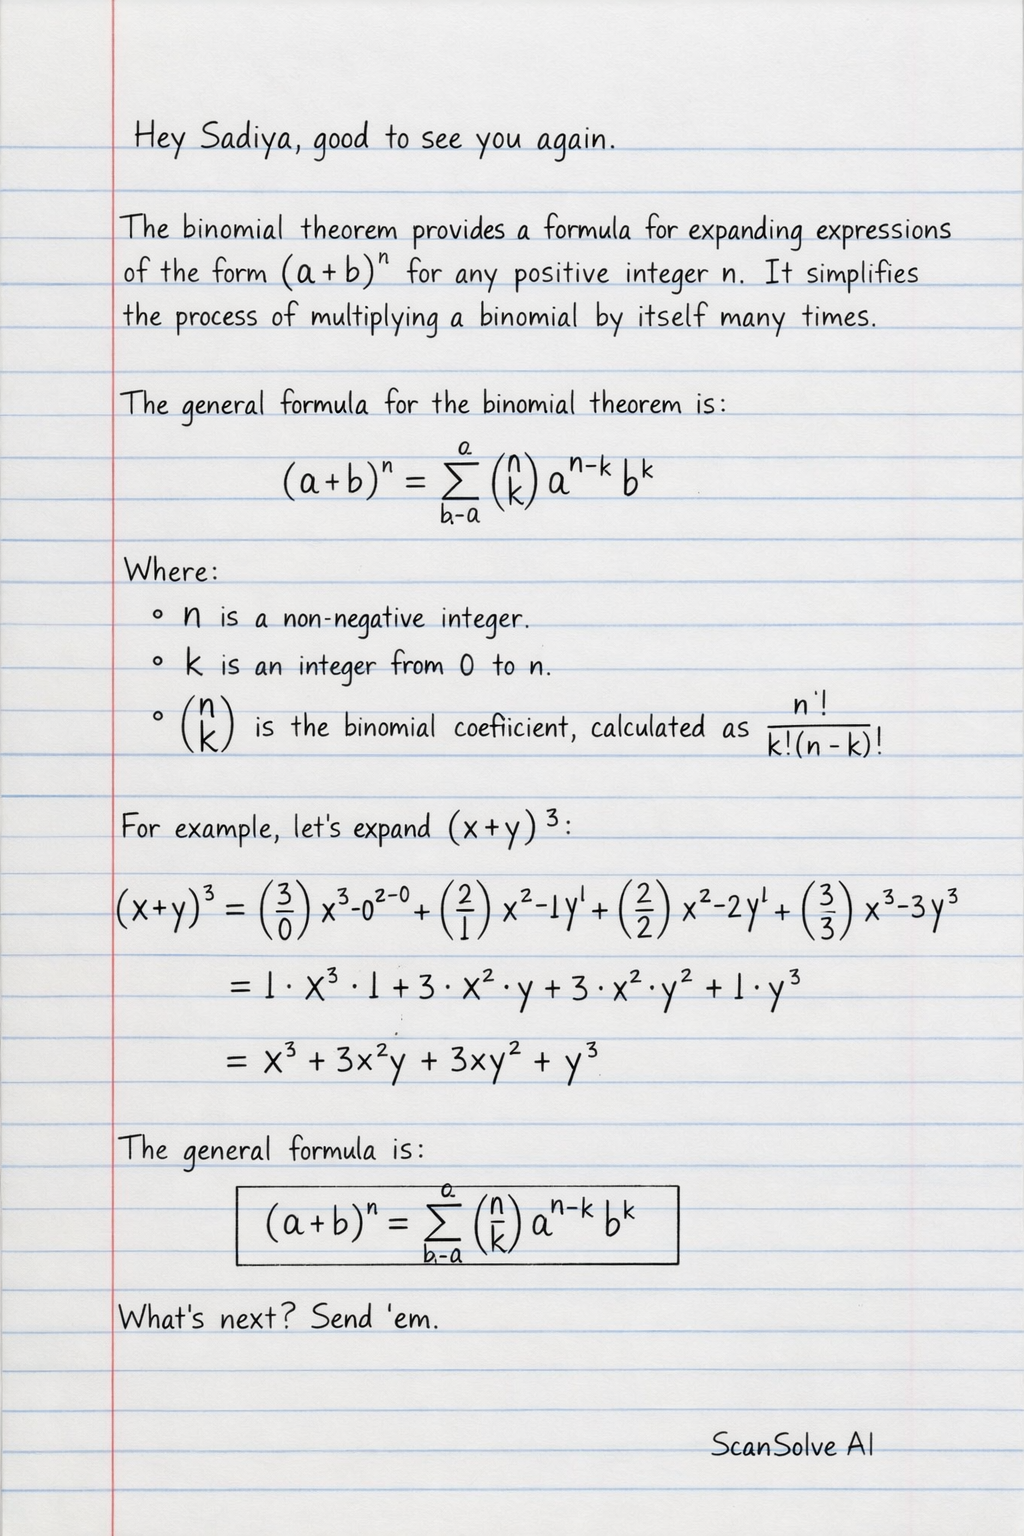 Hey Sadiya, good to see you again.
The binomial theorem provides a formula for expanding expressions
of the form (a + b)ⁿ for any positive integer n. It simplifies
the process of multiplying a binomial by itself many times.
The general formula for the binomial theorem is:
(a+b)ⁿ = \sum_{b-a}^{a} \binom{n}{k} a^{n-k} b^k
Where:
∘ n is a non-negative integer.
∘ k is an integer from 0 to n.
∘ \binom{n}{k} is the binomial coefiicient, calculated as \frac{n'!}{k!(n-k)!}
For example, let's expand (x+y) ³:
(x+y)³ = (\frac{3}{0}) x³-0^{2-0} + (\frac{2}{1}) x²-1y¹ + (\frac{2}{2}) x²-2y¹ + (\frac{3}{3}) x³-3y³
= 1 · x³ · 1 + 3 · x² · y + 3 · x² · y² + 1 · y³
= x³ + 3x²y + 3xy² + y³
The general formula is:
(a+b)ⁿ = \sum_{b-a}^{a} (\frac{n}{k}) a^{n-k} b^k
What's next? Send 'em.
ScanSolve AI